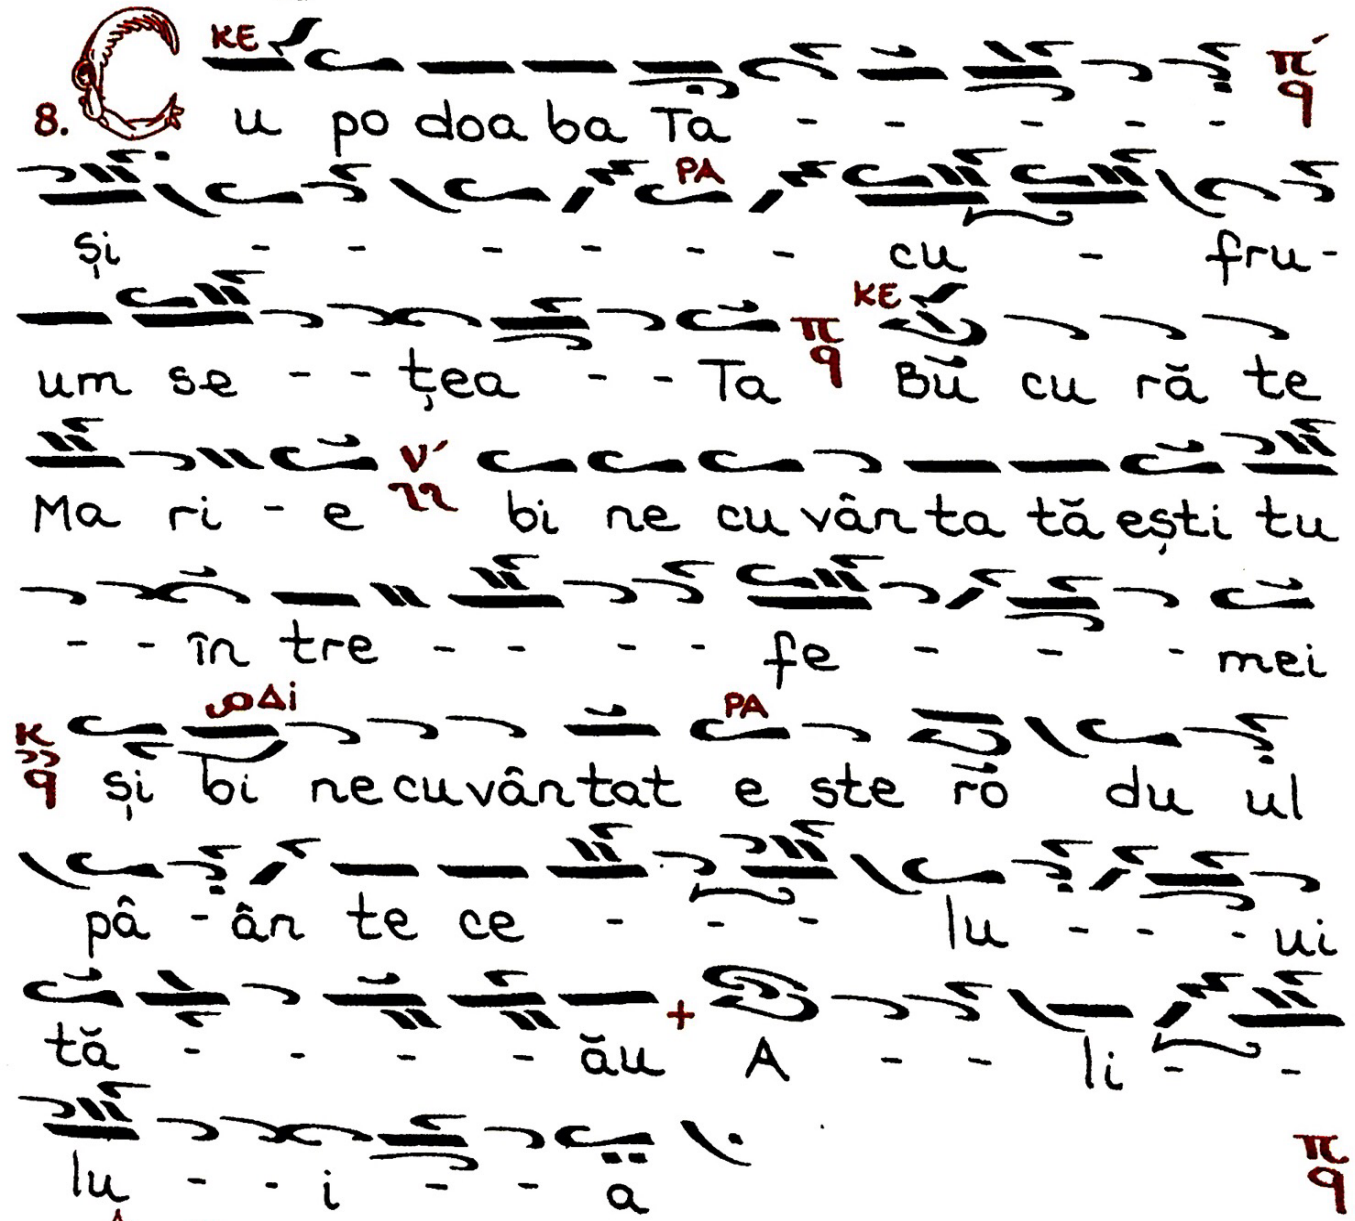 KE
8. Cu po doa ba Ta - - - - - π q
PA
și - - - - - - cu - fru-
KE
um se - - țea - - Ta π q Bu cu ră te
Ma ri - e ν´ bi ne cu vân ta tă ești tu
- - în tre - - - - fe - - - mei
Δi PA
K q și bi ne cu vân tat e ste ro du ul
pâ - ân te ce - - - lu - - - ui
tă - - - - ău + A - - li - -
lu - - i - - a π q